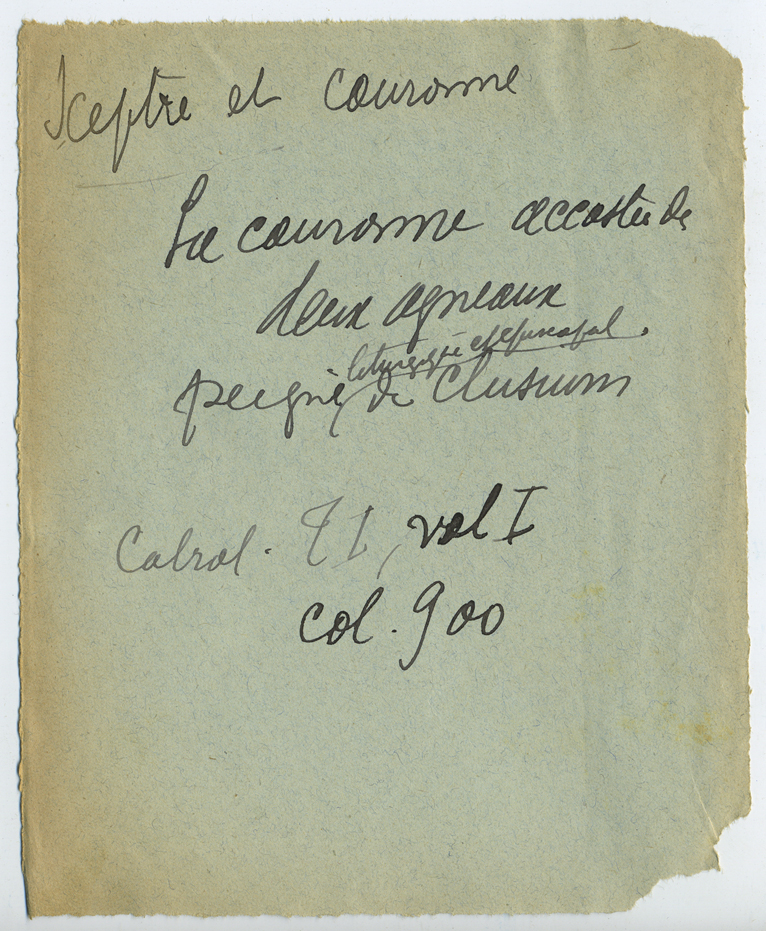 Sceptre et couronne
La couronne accostée de
deux agneaux
liturgique et épiscopal.
peigne de Clusium
Cabrol. T I, vol I
col. 900